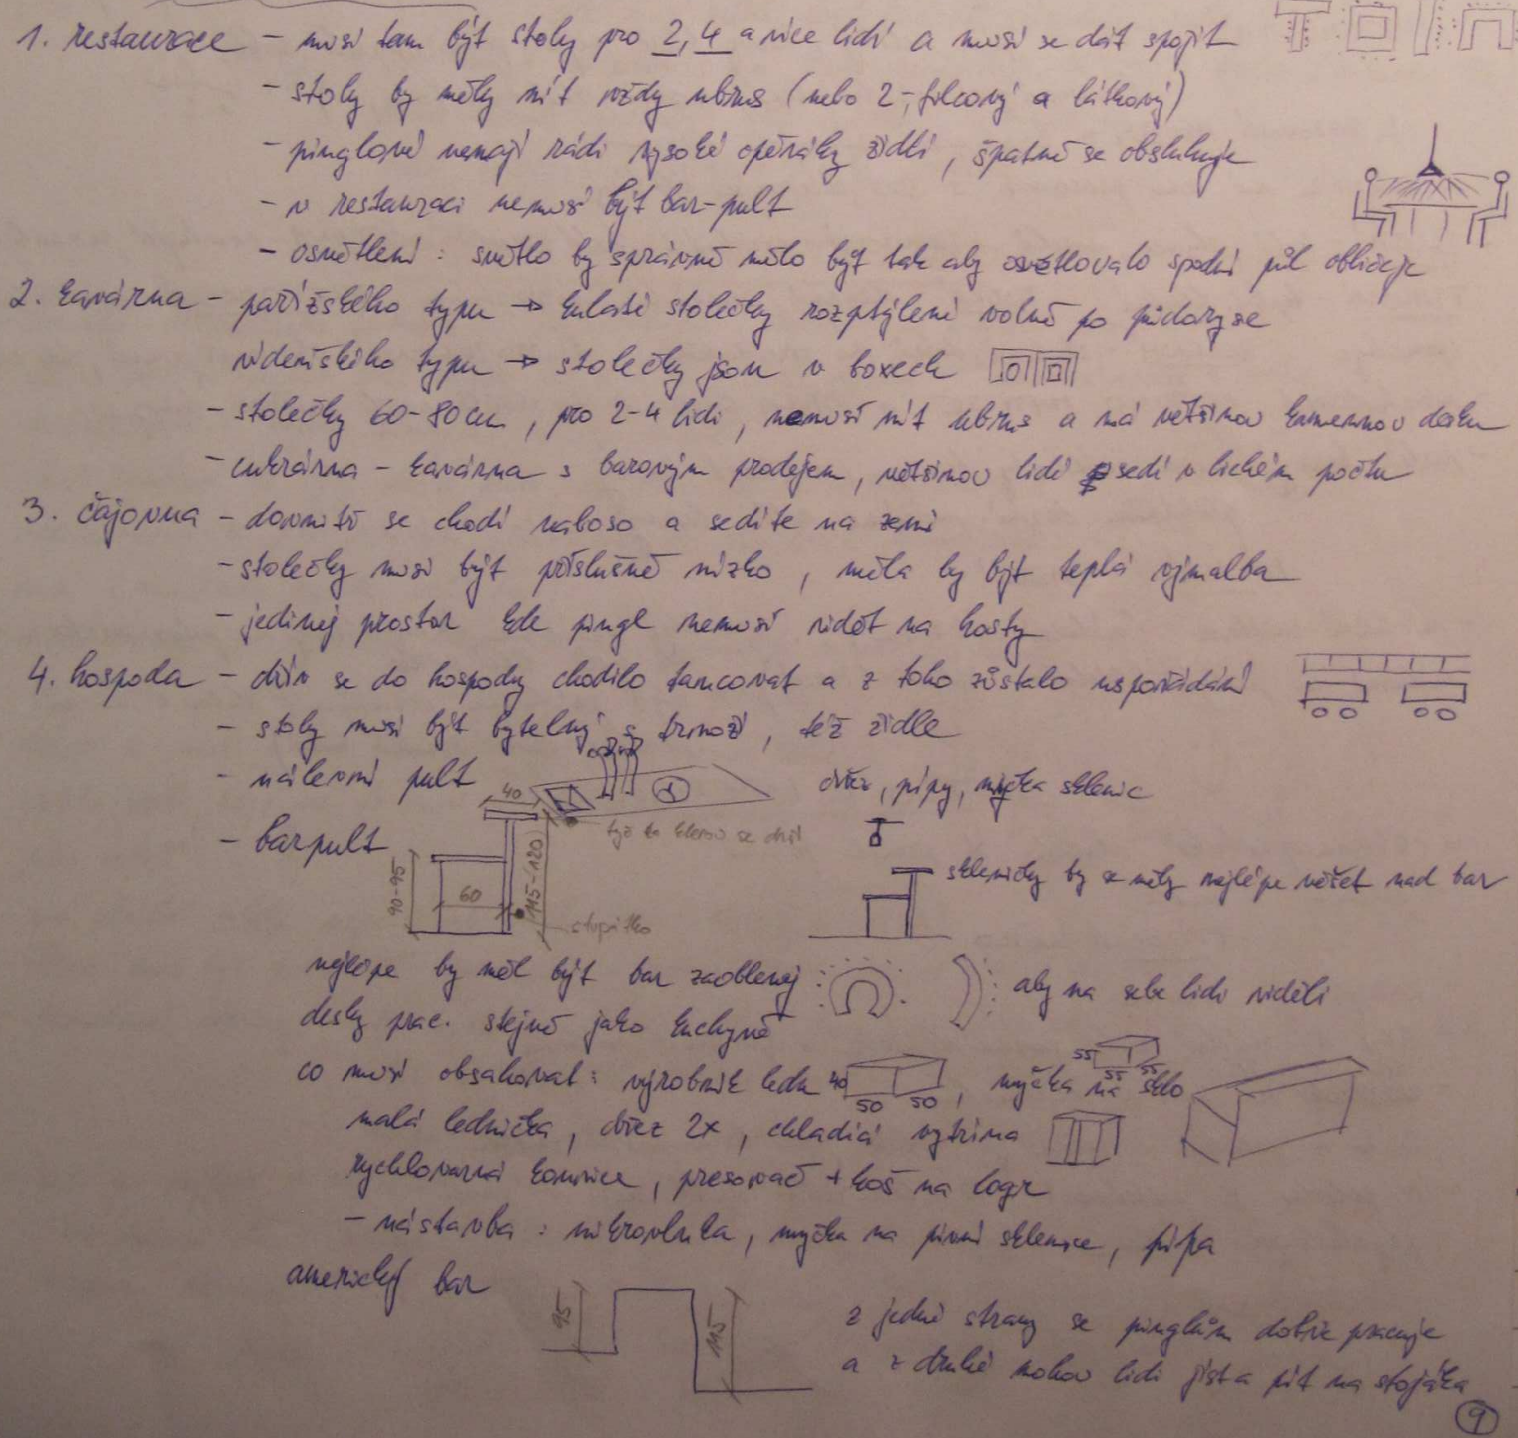 1. restaurace - musí tam být stoly pro 2, 4 a více lidí a musí se dát spojit
- stoly by měly mít vždy ubrus (nebo 2 - filcový a látkový)
- pinglové nemají rádi vysoké opěráky židlí, špatně se obsluhuje
- v restauraci nemusí být bar-pult
- osvětlení: světlo by správně mělo být tak aby osvětlovalo spodní půl obličeje
2. kavárna - pařížského typu → kulaté stolečky rozptýlené volně po půdoryse
vídeňského typu → stolečky jsou v boxech
- stolečky 60-80cm, pro 2-4 lidi, nemusí mít ubrus a má většinou kamennou desku
- cukrárna - kavárna s barovým prodejem, většinou lidí sedí v lichém počtu
3. čajovna - dovnitř se chodí naboso a sedíte na zemi
- stolečky musí být příslušně nízko, měla by být teplá výmalba
- jedinej prostor kde pingl nemusí vidět na hosty
4. hospoda - dřív se do hospody chodilo tancovat a z toho zůstalo uspořádání
- stoly musí být bytelný s trnoží, též židle
- nálevní pult dřez, pípy, myčka sklenic
40
tyč za kterou se drží
- barpult
90-95
60
115-(120)
stupátko
skleničky by se měly nejlépe věšet nad bar
nejlépe by měl být bar zaoblenej aby na sebe lidi viděli
desky prac. stejně jako kuchyně
co musí obsahovat: výrobník ledu 40 50 50, myčka na sklo 55 55 55
malá lednička, dřez 2x, chladící vytrína
rychlovarná konvice, presovač + koš na logr
- nástavba: mikrovlnka, myčka na pivní sklenice, pípa
americkej bar
95
115
z jedné strany se pinglům dobře pracuje
a z druhé mohou lidi jíst a pít na stojáka
9